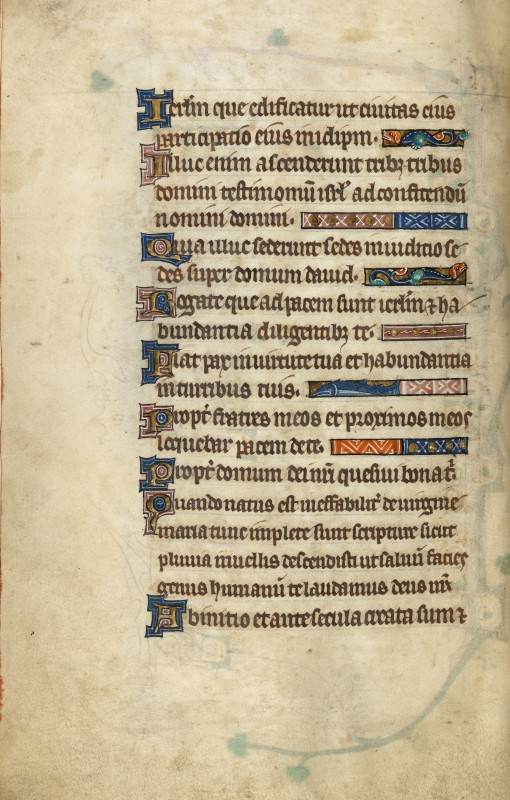 Ierlm̄ que edificatur ut ciuitas eius
participatio eius in idipm̄.
Illuc enim ascenderunt tribꝫ tribus
domini testimoniū isrl̄ ad confitendū
nomini domini.
Quia illuc sederunt sedes in iuditio se
des super domum dauid.
Rogate que ad pacem sunt ierlm̄ ⁊ ha
bundantia diligentibꝫ te.
Fiat pax in uirtute tua et habundantia
in turribus tuis.
Propt̄ fratres meos et proximos meos
loquebar pacem de te.
Propt̄ domum dei nr̄i quesiui bona t̄.
Quando natus est ineffabilit̄ de uirgine
maria tunc implete sunt scripture sicut
pluuia in uellus descendisti ut saluū faceres
genus humanū te laudamus deus nr̄
Ab initio et ante secula creata sum ⁊